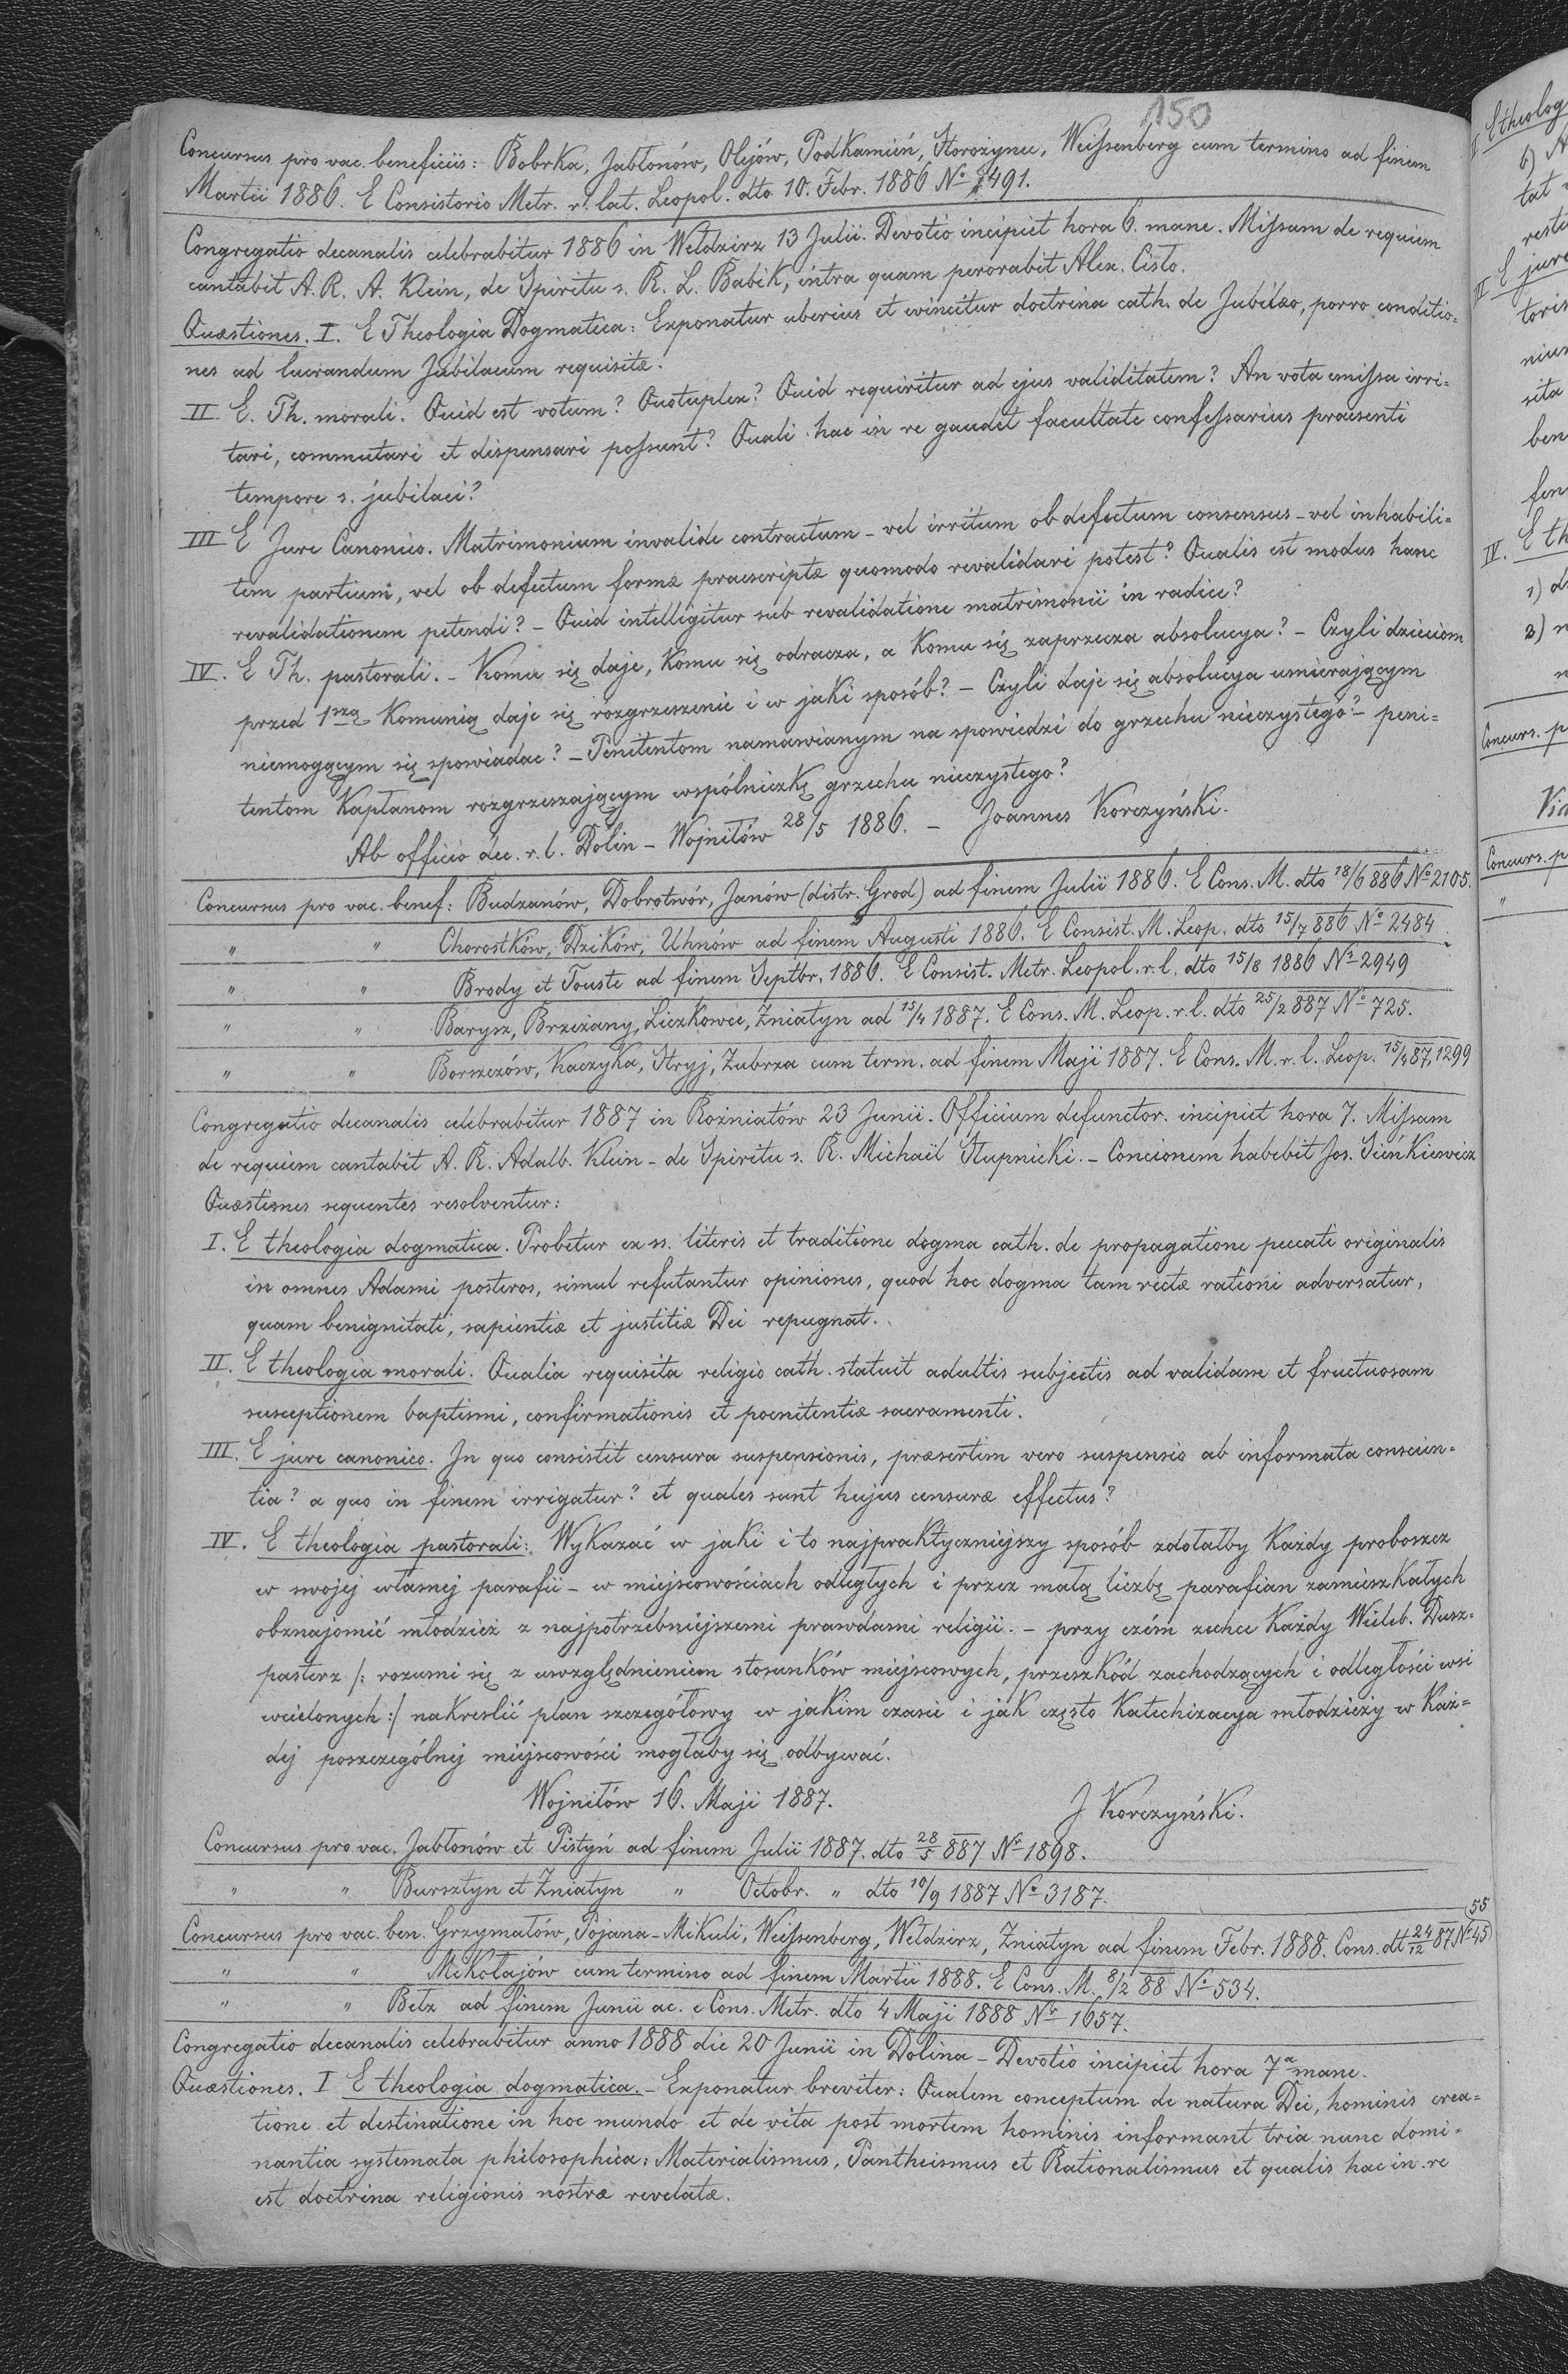 150
Concursus pro vac. beneficiis: Bobrka, Jabłonów, Olejów, Podkamień, Storożynec, Weissenberg cum termino ad finem
Martii 1886. E Consistorio Metr. r. lat. Leopol. dto 10. Febr. 1886 No 491.
Congregatio decanalis celebrabitur 1886 in Wełdzirz 13 Julii. Devotio incipiet hora 6. mane. Missam de requiem
cantabit A. R. A. Klein, de Spiritu s. R. L. Babik, intra quam perorabit Alex. Cisło.
Quæstiones. I. E Theologia Dogmatica: Exponatur uberius et evincitur doctrina cath. de Jubilæo, porro conditio=
nes ad lucrandum Jubilaeum requisitæ.
II E. Th. morali. Quid est votum? Quotuplex? Quid requiritur ad ejus validitatem? An vota emissa irri=
tari, commutari et dispensari possunt? Quali hac in re gaudet facultate confessarius praesenti
tempore s. jubilaei?
III E Jure Canonico. Matrimonium invalide contractum - vel irritum ob defectum consensus - vel inhabili=
tem partium, vel ob defectum formæ praescriptæ quomodo revalidari potest? Qualis est modus hanc
revalidationem petendi? - Quid intelligitur sub revalidatione matrimonii in radice?
IV. E Th. pastorali. - Komu się daje, Komu się odracza, a Komu się zaprzecza absolucya? - Czyli dzieciom
przed 1szą Komunią daje się rozgrzeszenie i w jaki sposób? - Czyli daje się absolucya umierającym
niemogącym się spowiadac? - Penitentom namawianym na spowiedzi do grzechu nieczystego? - peni=
tentom Kapłanom rozgrzeszającym wspólniczkę grzechu nieczystego?
Ab officio dec. r. l. Dolin - Wojniłów 28/5 1886. - Joannes Korczyński.
Concursus pro vac. benef: Budzanów, Dobrotwór, Janów (distr. Grod) ad finem Julii 1886. E Cons. M. dto 18/6 886 No 2105.
" " Chorostków, Dzików, Uhnów ad finem Augusti 1886. E Consist. M. Leop. dto 15/7 886 No 2484
" " Brody et Touste ad finem Septbr. 1886. E Consist. Metr. Leopol. r. l. dto 15/8 1886 No 2949
" " Barysz, Brzeżany, Liczkowce, Żniatyn ad 15/4 1887. E Cons. M. Leop. r. l. dto 25/2 887 No 725.
" " Borszczów, Kaczyka, Stryj, Zubrza cum term. ad finem Maji 1887. E Cons. M. r. l. Leop. 15/4 87, 1299
Congregatio decanalis celebrabitur 1887 in Rożniatów 23 Junii. Officium defunctor. incipiet hora 7. Missam
de requiem cantabit A. R. Adalb. Klein - de Spiritu s. R. Michaël Słupnicki. - Concionem habebit Jos. Sieńkiewicz
Quæstiones sequentes resolventur:
I. E theologia dogmatica. Probetur ex ss. literis et traditione dogma cath. de propagatione peccati originalis
in omnes Adami posteros, simul refutantur opiniones, quod hoc dogma tam rectæ rationi adversatur,
quam benignitati, sapientiæ et justitiæ Dei repugnat.
II. E theologia morali. Qualia requisita religio cath. statuit adultis subjectis ad validam et fructuosam
susceptionem baptismi, confirmationis et poenitentiæ sacramenti.
III. E jure canonico. In quo consistit censura suspensionis, præsertim vero suspensio ab informata conscien=
tia? a quo in finem irrigatur? et quales sunt hujus censuræ effectus?
IV. E theologia pastorali: Wykazać w jaki i to najpraktyczniejszy sposób zdołałby Każdy proboszcz
w swojej własnej parafii - w miejscowościach odległych i przez małą liczbę parafian zamieszkałych
obznajomić młodzież z najpotrzebniejszemi prawdami religii. - przy czém zechce Każdy Wieleb. Dusz=
pasterz /: rozumi się z uwzględnieniem stosunków miejscowych, przeszkód zachodzących i odległości wsi
wcielonych :/ nakreslić plan szczegółowy w jakim czasie i jak często Katechizacya młodzieży w Każ=
dej poszczególnej miejscowości mogłaby się odbywać.
Wojniłów 16. Maji 1887. J Korczyński.
Concursus pro vac. Jabłonów et Pistyń ad finem Julii 1887. dto 28/5 887 Nr 1898.
" " Bursztyn et Żniatyn " Octobr. " dto 10/9 1887 No 3187.
Concursus pro vac. ben. Grzymałów, Pojana-Mikuli, Weissenberg, Wełdzirz, Żniatyn ad finem Febr. 1888. Cons. dt 24/12 87 No 55/45
" " Mikołajów cum termino ad finem Martii 1888. E Cons. M. 8/2 88 No 534.
" " Bełz ad finem Junii ac. e Cons. Metr. dto 4 Maji 1888 Nr 1657.
Congregatio decanalis celebrabitur anno 1888 die 20 Junii in Dolina - Devotio incipiet hora 7a mane.
Quæstiones. I E theologia dogmatica. - Exponatur breviter: Qualem conceptum de natura Dei, hominis crea=
tione et destinatione in hoc mundo et de vita post mortem hominis informant tria nunc domi=
nantia systemata philosophica: Materialismus, Pantheismus et Rationalismus et qualis hac in re
est doctrina religionis nostræ revelatæ.